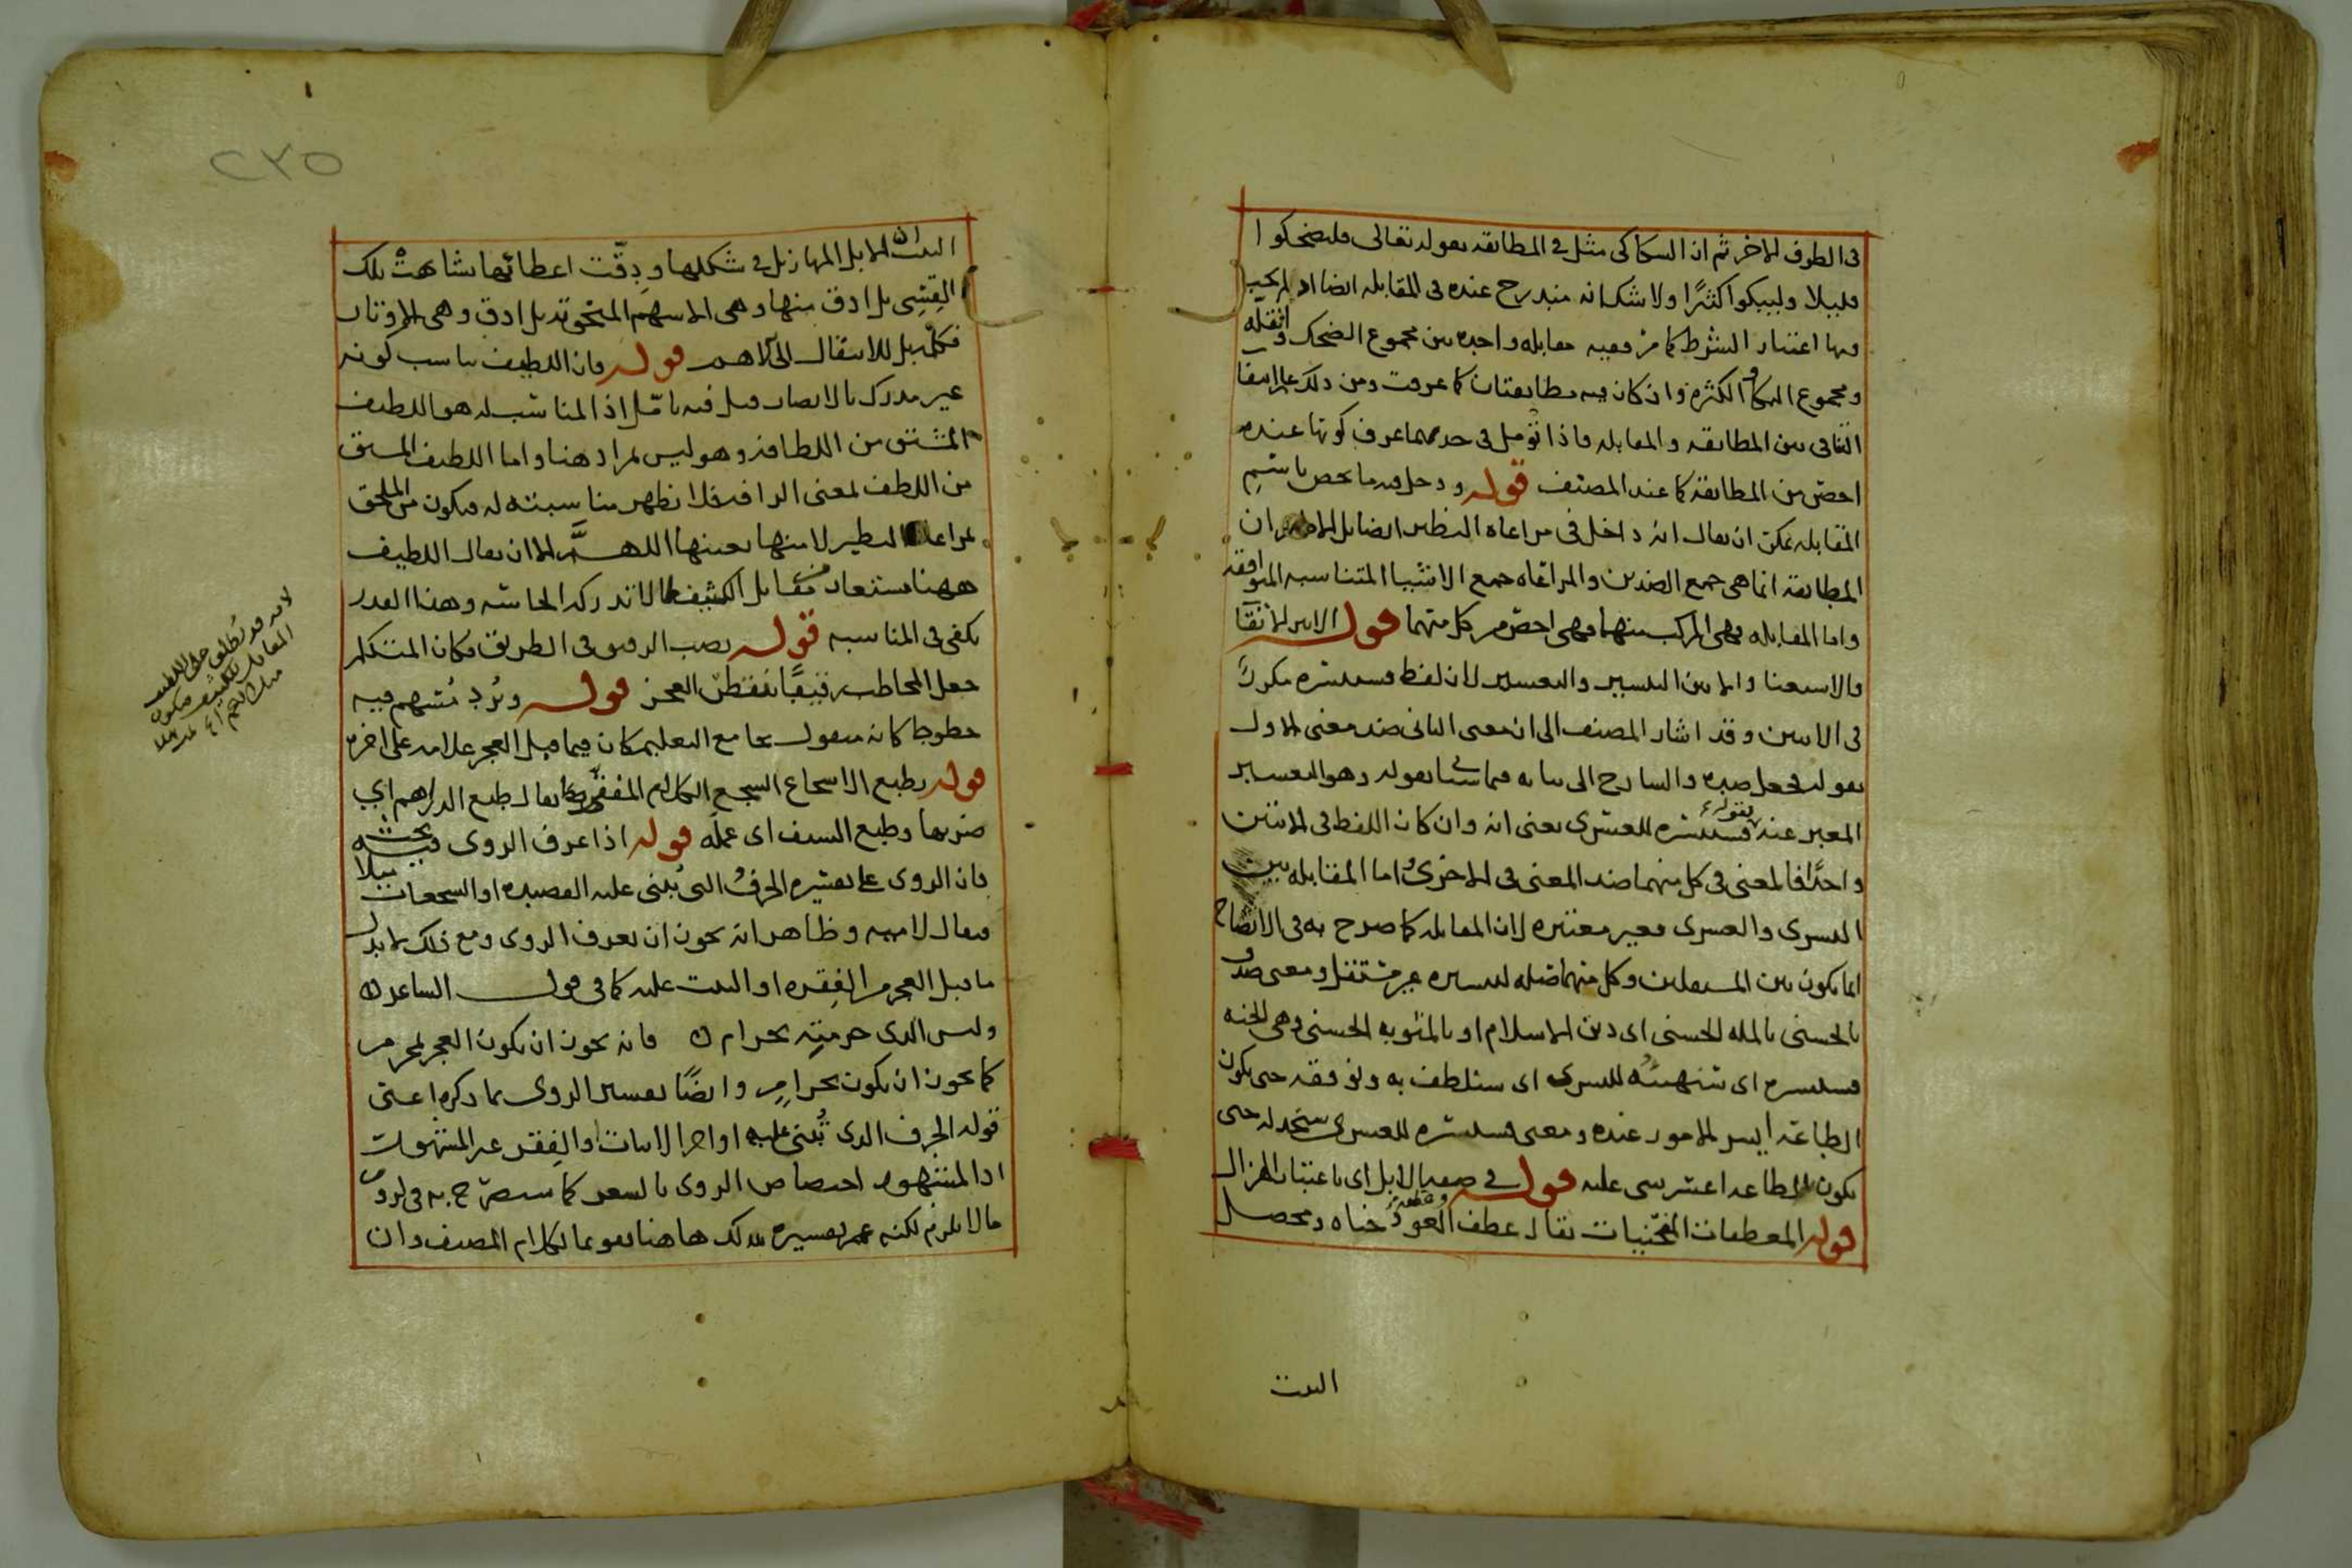 فى الطرف الاخر ثم ان السكاكى مثل فى المطابقه بقوله تعالى فليضحكوا
قليلا وليبكوا كثيرًا ولا شك انه مندرج عنده فى المقابله ايضا اذ لم يجب
فيها اعتبار الشرط كما مر ففيه مقابله واحده بين مجموع الضحك وقلته
ومجموع البكاء والكثره وان كان فيه مطابقتان كما عرفت ومن ذلك علم انتفا
التنافى بين المطابقه والمقابله فاذا تؤمل فى حدهما عرف كونها عنده
اخص من المطابقة كما عند المصنف قوله ودخل فيه ما يختص باسم
المقابله يمكن ان يقال انه داخل فى مراعاه النظير ايضا بل الاظهر ان
المطابقه انما هى جمع الضدين والمراعاه جمع الاشيا المتناسبه المتوافقه
واما المقابله فهى المركب منهما فهى اخص من كل منهما قوله الا بين الاتقا
والاستغنا والا بين اليسير والتعسير لان لفظ فسنيسره مكررٌ
فى الايتين وقد اشار المصنف الى ان معنى الثانى ضد معنى الاول
بقوله فجعل ضده والشارح الى بيانه فيما سيأتى بقوله وهو التعسير
المعبر عنه بقوله فسنيسره للعسرى يعنى انه وان كان اللفظ فى الاثنين
واحدًا فالمعنى فى كل منهما ضد المعنى فى الاخرى واما المقابله بين
اليسرى والعسرى فغير معتبره لان المقابله كما صرح به فى الايضاح
انما يكون بين المستقلين وكل منهما صله لنيسره غير مستقل ومعنى صدق
بالحسنى بالمله الحسنى اى دين الاسلام او بالمثوبه الحسنى وهى الجنه
فسنيسره اى سنهيئه لليسرى اى سنلطف به ونوفقه حتى يكون
الطاعة ايسر الامور عنده ومعنى فسنيسره للعسرى سنخذله حتى
يكون الطاعه اعسر شى عليه قوله فى صفه الابل اى باعتبار الهزال
قوله المعطفات المنحنيات يقال عطف العود وعطفه حناه ومحصل
البيت
٢٣٥
البيت ان الابل المهازيل فى شكلها ودقّت اعطائها شابهت تلك
القِسِى بل ادق منها وهى الاسهم المنحوته بل ادق وهى الاوتار
فكل بل للانتقال الى الاهم قوله فان اللطيف يناسب كونه
غير مدرك بالابصار قيل فيه تامّل اذ المناسب له هو اللطيف
المشتق من اللطافه وهو ليس بمراد هنا واما اللطيف المشتق
من اللطف بمعنى الرافه فلا يظهر مناسبته له فيكون من الملحق
بمراعاه النظير لا منها بعينها اللهـم الا ان يقال اللطيف
ههنا مستعار من مقابل الكثيف لما لا تدركه الحاسه وهذا القدر
يكفى فى المناسبه قوله نصب الرقيب فى الطريق فكان المتكلم
جعل المخاطب رقيبًا لفظن العجز قوله وبُرد مُسَهم فيه
خطوط كانه منقول بجامع التعليم كان فيما قبل العجز علامه على اخره
قوله يطبع الاسجاع السجع الكلام المقفى يقال طبع الدراهم اي
ضربها وطبع السيف اى عمله قوله اذا عرف الروى فيه بحث
فان الروى على تفسيره الحرف التى يُبنى عليه القصيده او السجعات مثلا
فيقال لاميه وظاهر انه يجوز ان يعرف الروى ومع ذلك لا يدل
ما قبل العجز من الفِقره او البيت عليه كما فى قول الشاعر ه
وليس الذى حرمتِه بحرام ه فانه يجوز ان يكون العجز بمحرم
كما يجوز ان يكون بحرامٍ وايضًا تفسير الروى بما ذكره اعنى
قوله الحرف الذى يُبنى عليه اواخر الابيات والفِقر غير المشهور
اذ المشهور اختصاص الروى بالشعر كما سيصرّح به فى لزوم
ما لا يلزم لكنه عمم تفسيره بذلك هاهنا تقويما لكلام المصنف وان
لانه قد يُطلق على اللطيف
المقابل للكثيف فيكون